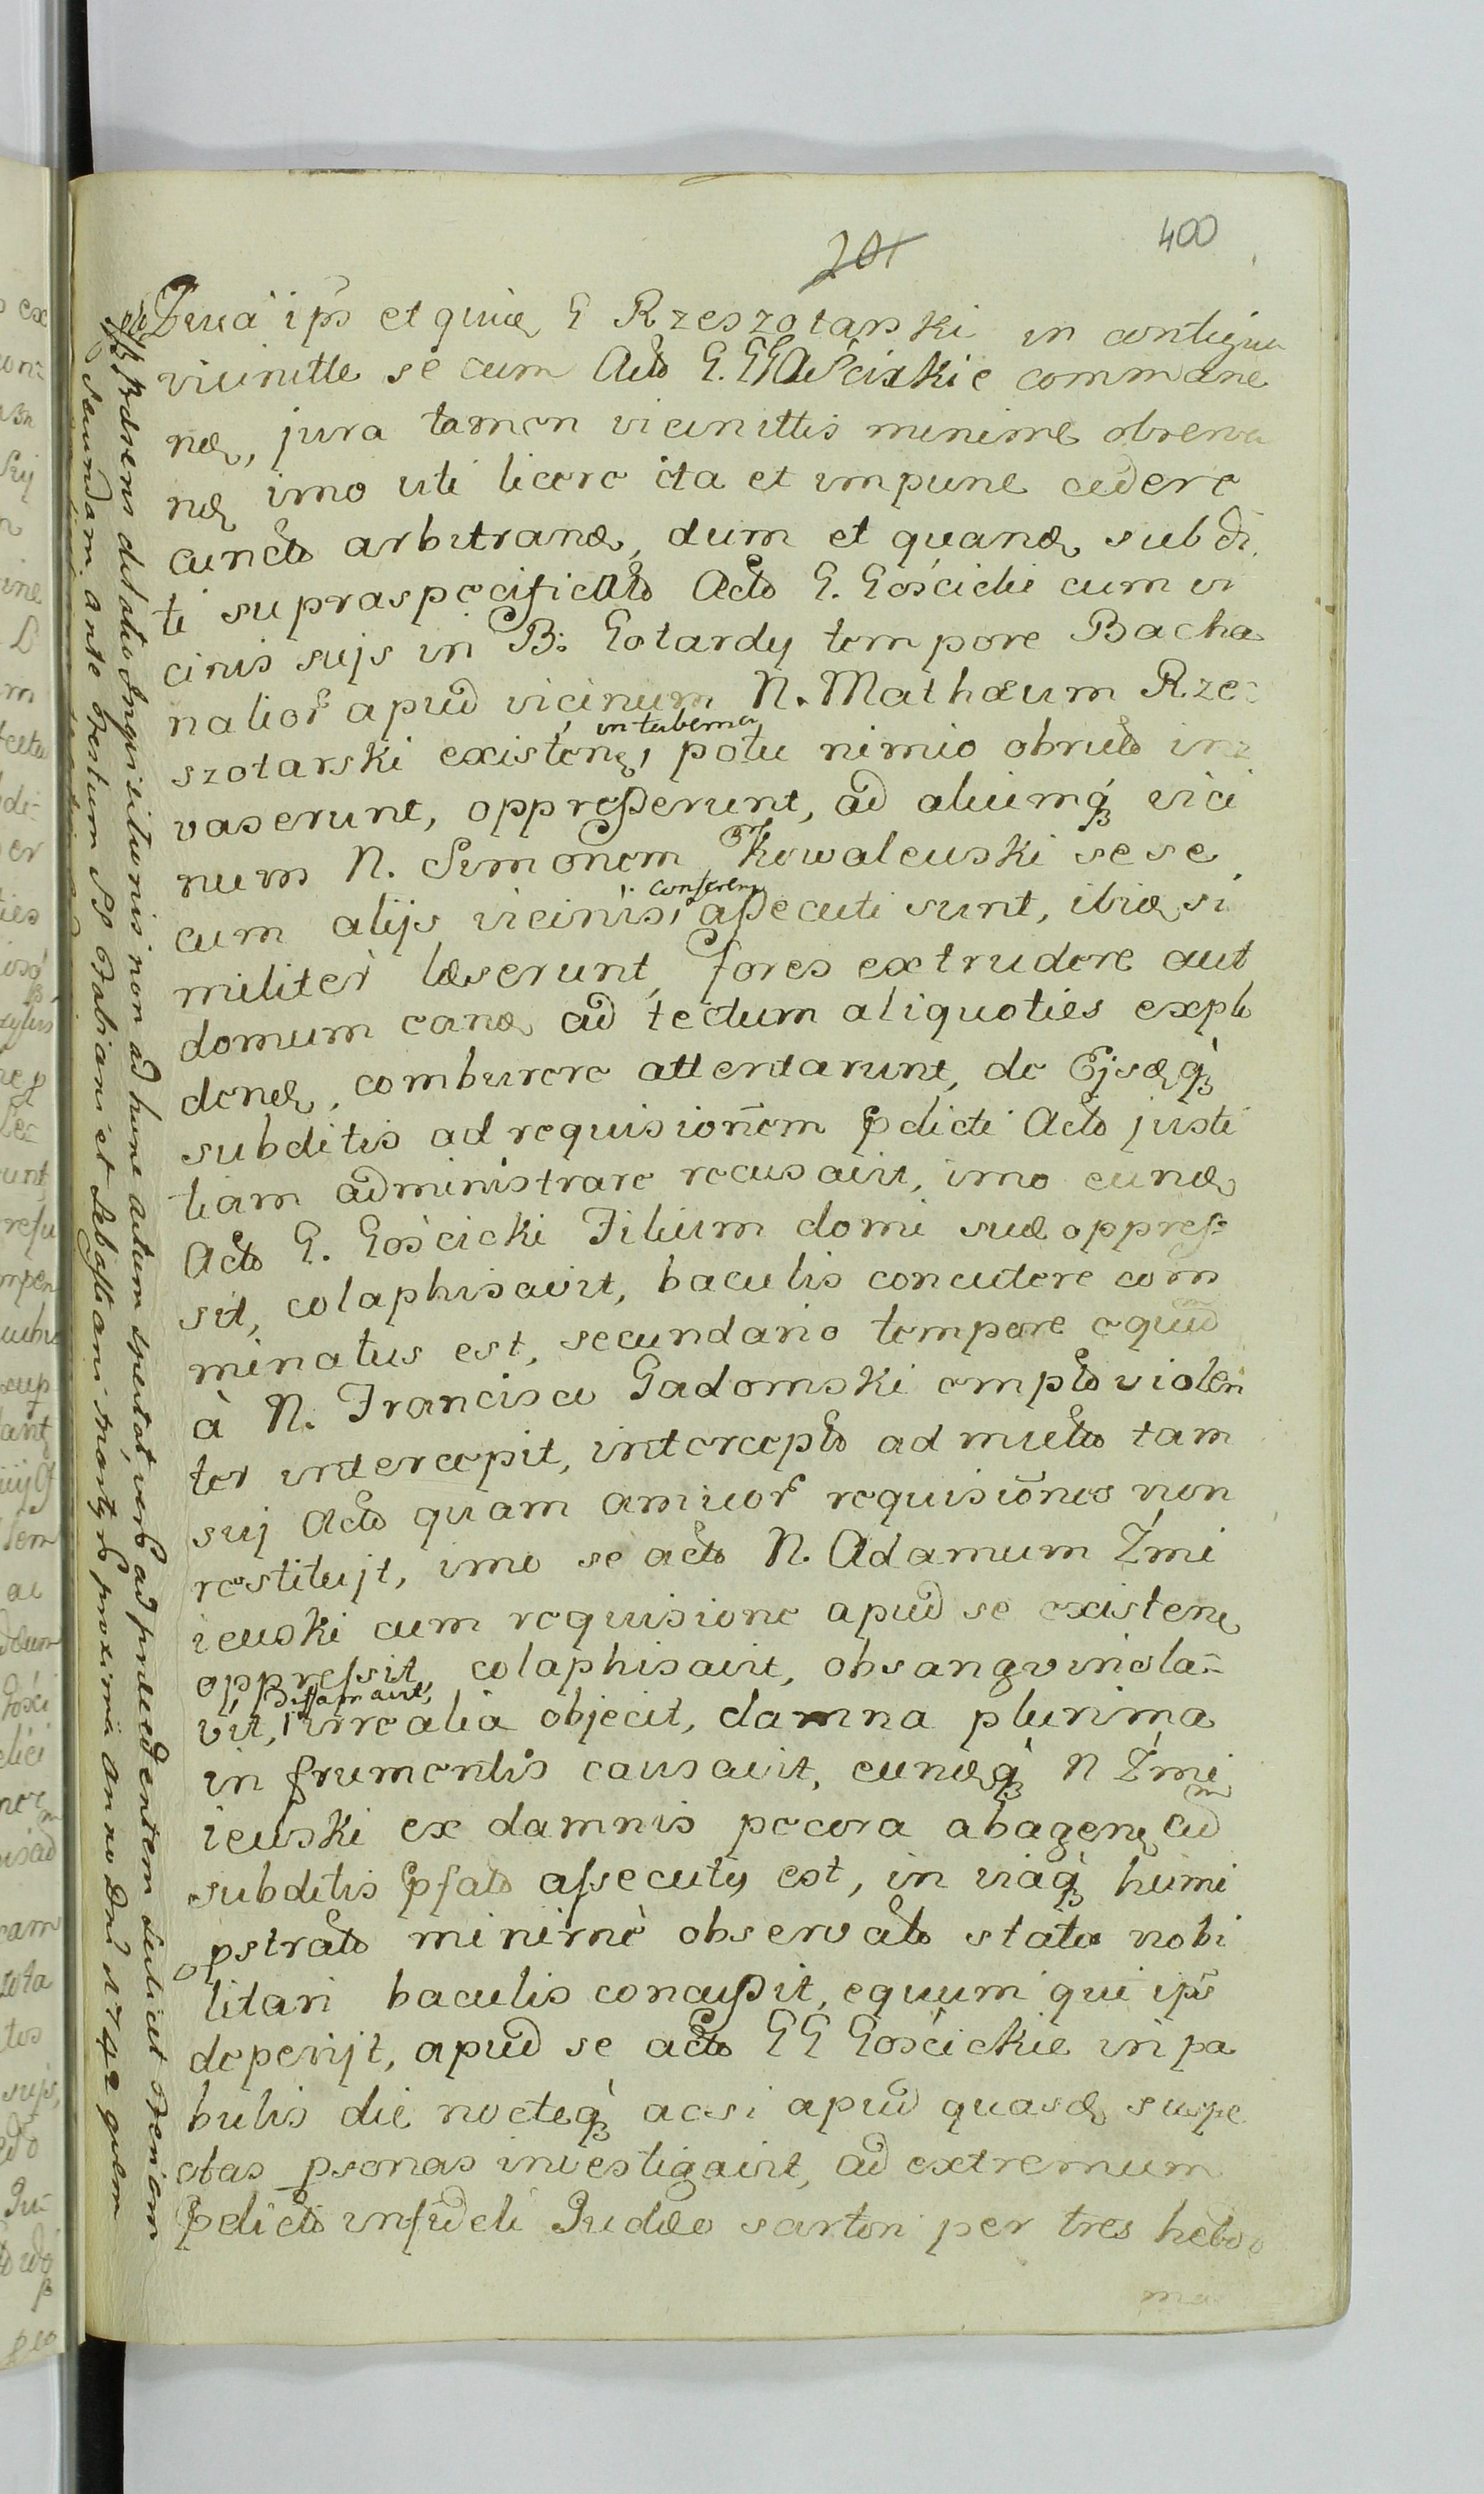 400
201
ips et quia G Rzeszotarski in contigua
vicinitte se cum Acto G. G Gościckie commane
nd, jura tamen vicinittis minime observa
nd imo uti licere ita et impune cedere
cuncto arbitrand, dum et quand subdi
ti supraspecificato Acto G. Gościcki cum vi
cinis sujs in B: Gotardy tempore Bacha
nalior apud vicinum N. Mathæum Rze-
in taberna
szotarski existen, potu nimio obruto in
vaserunt, oppresserunt, ad aliumq vici
num N. Simonem Kowalewski sese
conferen
cum alijs vicinis, assecuti sunt, ibid si
militer læserunt, fores extrudere aut
domum eand ad tectum aliquoties explo
dend, comburere attentarunt, de Ejsdq
subditis ad requisionem pdicti Acto justi
tiam administrare recusavit, imo eund
Acto G. Gościcki Filium domi suæ oppres-
sit, colaphisavit, baculis concutere com
minatus est, secundario tempore equum
à N. Francisco Gadomski empto violen
ter intercepit, intercepto ad mieto tam
suj Acto quam amicor requisiones non
restituit, imo se acto N. Adamum Żmi
iewski cum requisione apud se existen
oppressit, colaphisavit, obsangvinola-
Diffamavit,
vit, irrealia objecit, damna plurima
in frumentis causavit, eundq N Żmi
iewski ex damnis pecora abagen cum
subditis psato assecuty est, in viaq humi
pstrato minimè observato statu nobi
litari baculis concussit, equum qui ips
deperijt, apud se acto GG Gościckie in pa
bulis die nocteq acsi apud quasd suspe
ctas psonas investigavit, ad extremum
pdicto infideli Judæo sartori per tres hebdo
ma
præsens ditatio Inquisitionis non ad hunc actum spectat, verb ad præcedentem scilicet Feriam
secundam ante Festum SS Fabiani et Sebastiani Martyrb proximā Anno Dni 1742